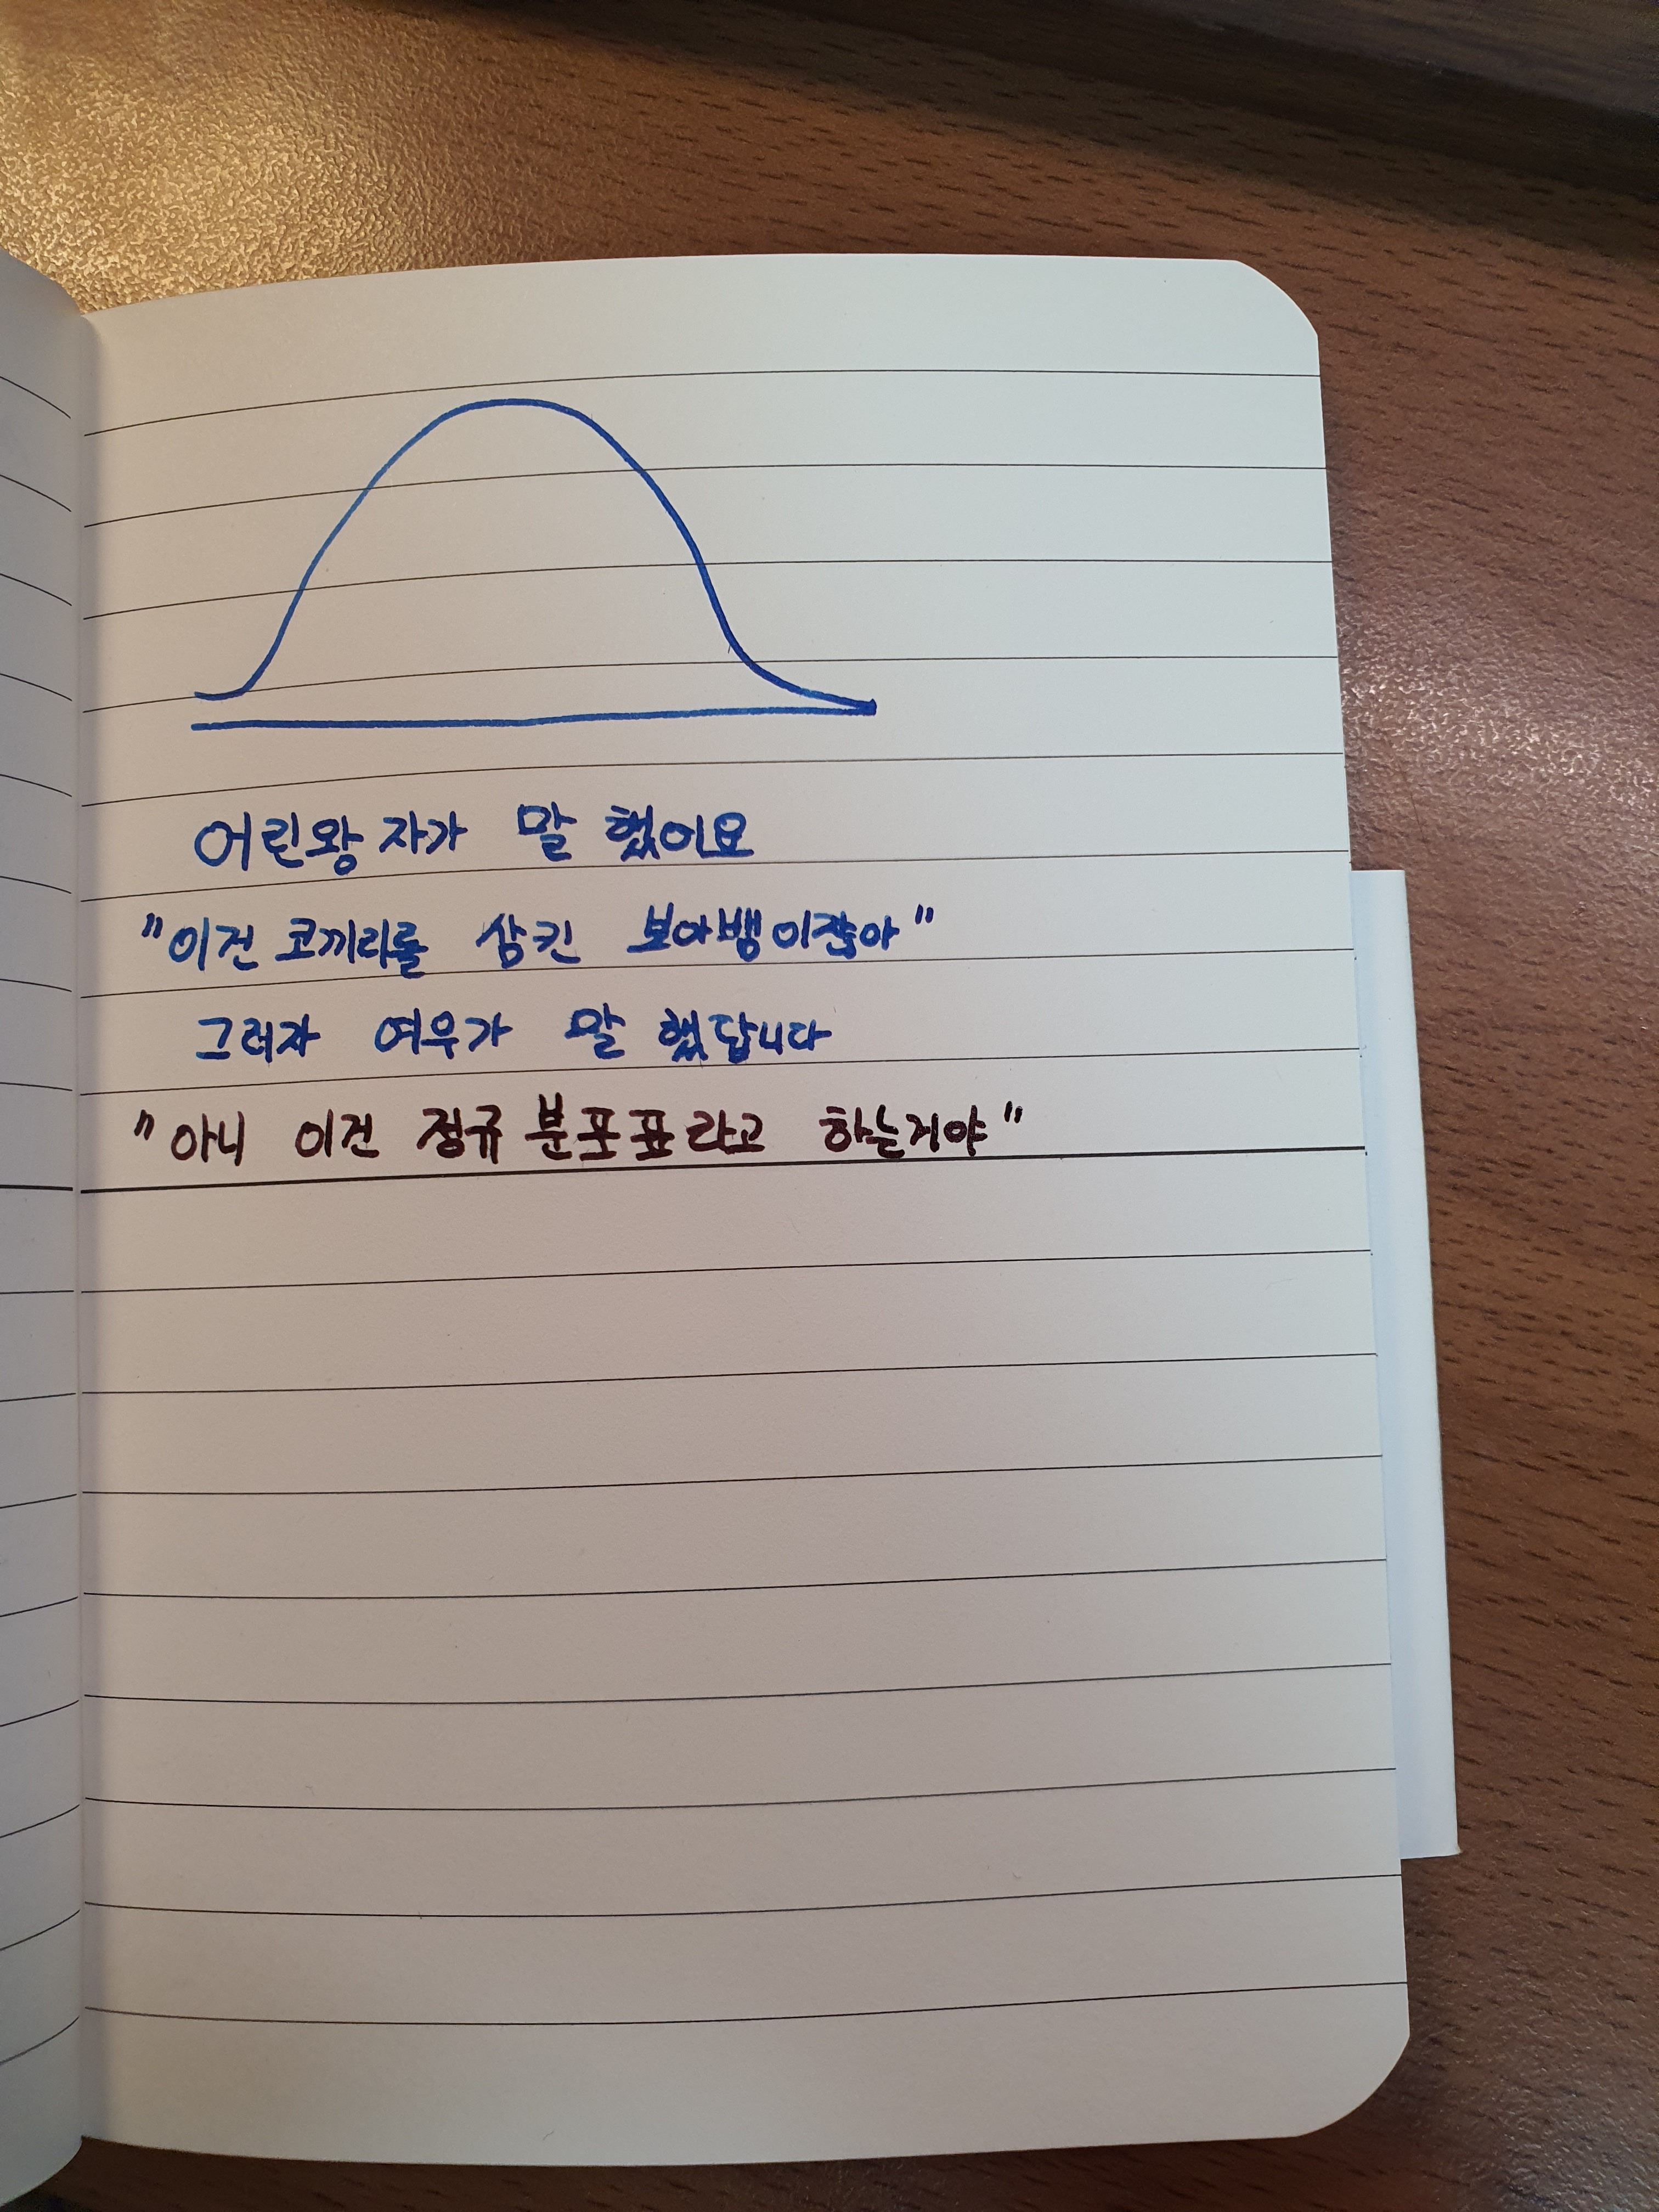 어린왕자가 말했어요
"이건 코끼리를 삼킨 보아뱀이잖아"
그러자 여우가 말했답니다
"아니 이건 정규분포표라고 하는거야"